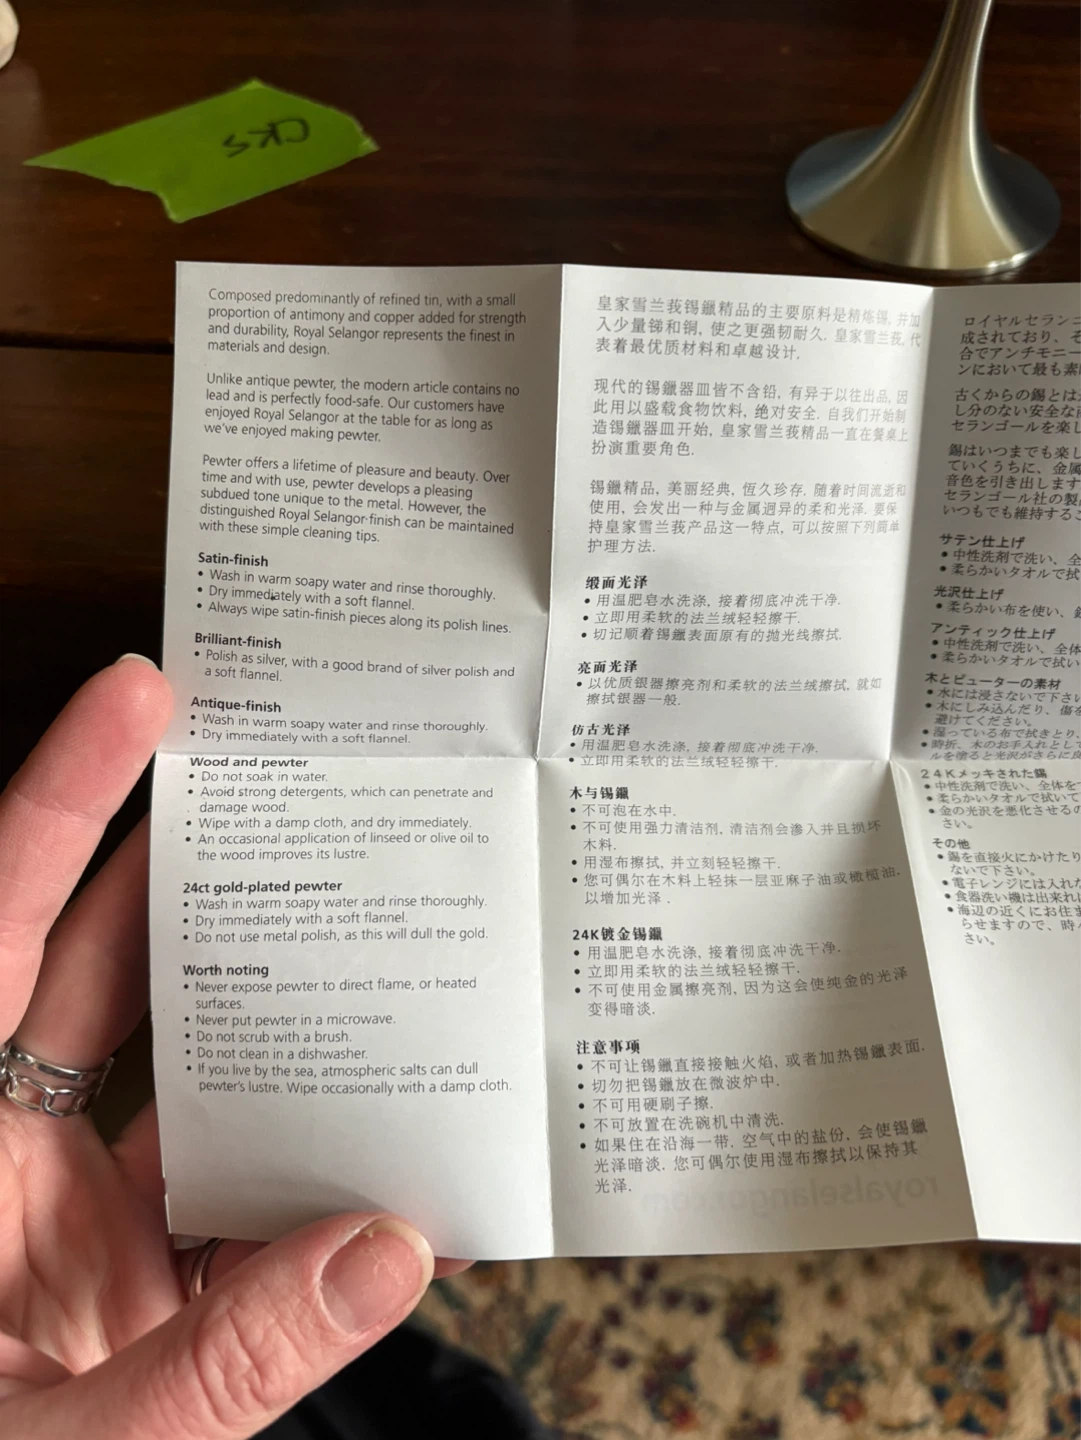 CKS
Composed predominantly of refined tin, with a small
proportion of antimony and copper added for strength
and durability, Royal Selangor represents the finest in
materials and design.
Unlike antique pewter, the modern article contains no
lead and is perfectly food-safe. Our customers have
enjoyed Royal Selangor at the table for as long as
we've enjoyed making pewter.
Pewter offers a lifetime of pleasure and beauty. Over
time and with use, pewter develops a pleasing
subdued tone unique to the metal. However, the
distinguished Royal Selangor finish can be maintained
with these simple cleaning tips.
Satin-finish
• Wash in warm soapy water and rinse thoroughly.
• Dry immediately with a soft flannel.
• Always wipe satin-finish pieces along its polish lines.
Brilliant-finish
• Polish as silver, with a good brand of silver polish and
a soft flannel.
Antique-finish
• Wash in warm soapy water and rinse thoroughly.
• Dry immediately with a soft flannel.
Wood and pewter
• Do not soak in water.
• Avoid strong detergents, which can penetrate and
damage wood.
• Wipe with a damp cloth, and dry immediately.
• An occasional application of linseed or olive oil to
the wood improves its lustre.
24ct gold-plated pewter
• Wash in warm soapy water and rinse thoroughly.
• Dry immediately with a soft flannel.
• Do not use metal polish, as this will dull the gold.
Worth noting
• Never expose pewter to direct flame, or heated
surfaces.
• Never put pewter in a microwave.
• Do not scrub with a brush.
• Do not clean in a dishwasher.
• If you live by the sea, atmospheric salts can dull
pewter's lustre. Wipe occasionally with a damp cloth.
皇家雪兰莪锡鑞精品的主要原料是精炼锡, 并加
入少量锑和铜, 使之更强韧耐久. 皇家雪兰莪, 代
表着最优质材料和卓越设计.
现代的锡鑞器皿皆不含铅, 有异于以往出品, 因
此用以盛载食物饮料, 绝对安全. 自我们开始制
造锡鑞器皿开始, 皇家雪兰莪精品一直在餐桌上
扮演重要角色.
锡鑞精品, 美丽经典, 恆久珍存. 随着时间流逝和
使用, 会发出一种与金属迥异的柔和光泽. 要保
持皇家雪兰莪产品这一特点, 可以按照下列简单
护理方法.
缎面光泽
• 用温肥皂水洗涤, 接着彻底冲洗干净.
• 立即用柔软的法兰绒轻轻擦干.
• 切记顺着锡鑞表面原有的抛光线擦拭.
亮面光泽
• 以优质银器擦亮剂和柔软的法兰绒擦拭, 就如
擦拭银器一般.
仿古光泽
• 用温肥皂水洗涤, 接着彻底冲洗干净.
• 立即用柔软的法兰绒轻轻擦干.
木与锡鑞
• 不可泡在水中.
• 不可使用强力清洁剂, 清洁剂会渗入并且损坏
木料.
• 用湿布擦拭, 并立刻轻轻擦干.
• 您可偶尔在木料上轻抹一层亚麻子油或橄榄油,
以增加光泽 .
24K镀金锡鑞
• 用温肥皂水洗涤, 接着彻底冲洗干净.
• 立即用柔软的法兰绒轻轻擦干.
• 不可使用金属擦亮剂, 因为这会使纯金的光泽
变得暗淡.
注意事项
• 不可让锡鑞直接接触火焰, 或者加热锡鑞表面.
• 切勿把锡鑞放在微波炉中.
• 不可用硬刷子擦.
• 不可放置在洗碗机中清洗.
• 如果住在沿海一带. 空气中的盐份, 会使锡鑞
光泽暗淡. 您可偶尔使用湿布擦拭以保持其
光泽.
royalselangor.com
ロイヤルセランゴ
成されており、そ
合でアンチモニー
ンにおいて最も素
古くからの錫とは
し分のない安全な
セランゴールを楽し
錫はいつまでも楽し
ていくうちに、金属
音色を引き出します
セランゴール社の製
いつもでも維持するこ
サテン仕上げ
• 中性洗剤で洗い、全
• 柔らかいタオルで拭
光沢仕上げ
• 柔らかい布を使い、
アンティック仕上げ
• 中性洗剤で洗い、全体
• 柔らかいタオルで拭い
木とピューターの素材
• 水には浸さないで下さい
• 木にしみ込んだり、傷を
避けてください。
• 湿っている布で拭きとり、
• 時折、木のお手入れとして
ルを塗ると光沢がさらに良
24Kメッキされた錫
• 中性洗剤で洗い、全体を
• 柔らかいタオルで拭いて
• 金の光沢を悪化させるの
さい。
その他
• 錫を直接火にかけたり
ないで下さい。
• 電子レンジには入れな
• 食器洗い機は出来れば
• 海辺の近くにお住ま
らせますので、時々
さい。